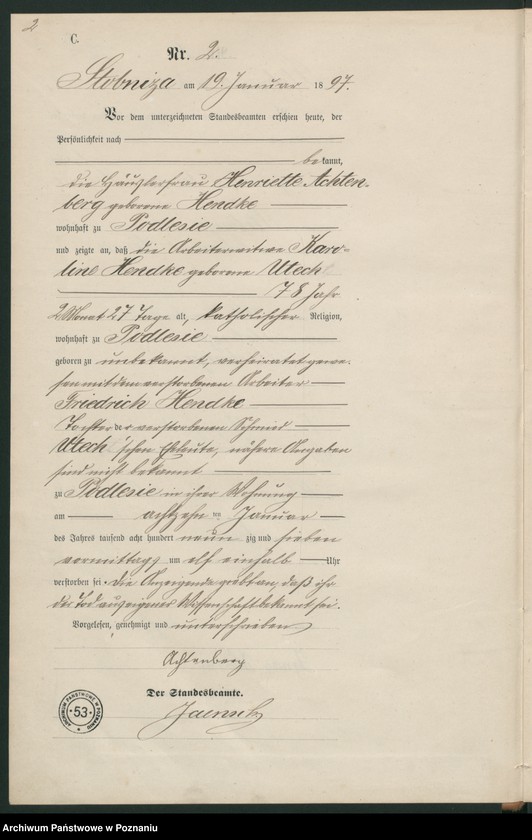 2
C.
Nr. 2.
Stobniza am 19. Januar 1897.
Vor dem unterzeichneten Standesbeamten erschien heute, der
Persönlichkeit nach
bekannt,
die Häuslerfrau Henriette Achten-
berg geborene Hendke
wohnhaft zu Podlesie
und zeigte an, daß die Arbeiterwitwe Karo-
line Hendke geborene Utech
78 Jahr
2 Monat 27 Tage alt, katholischer Religion,
wohnhaft zu Podlesie
geboren zu unbekannt, verheiratet gewe-
sen mit dem verstorbenen Arbeiter
Friedrich Hendke
Tochter der verstorbenen Schmied
Utech'schen Eheleute, nähere Angaben
sind nicht bekannt
zu Podlesie in ihrer Wohnung
am achtzehn ten Januar
des Jahres tausend acht hundert neun zig und sieben
vormittags um elf einhalb Uhr
verstorben sei. Die Anzeigende giebt an, daß ihr
der Tod aus eigener Wissenschaft bekannt sei.
Vorgelesen, genehmigt und unterschrieben
Achtenberg
Der Standesbeamte.
ARCHIWUM PAŃSTWOWE W POZNANIU
53
Archiwum Państwowe w Poznaniu